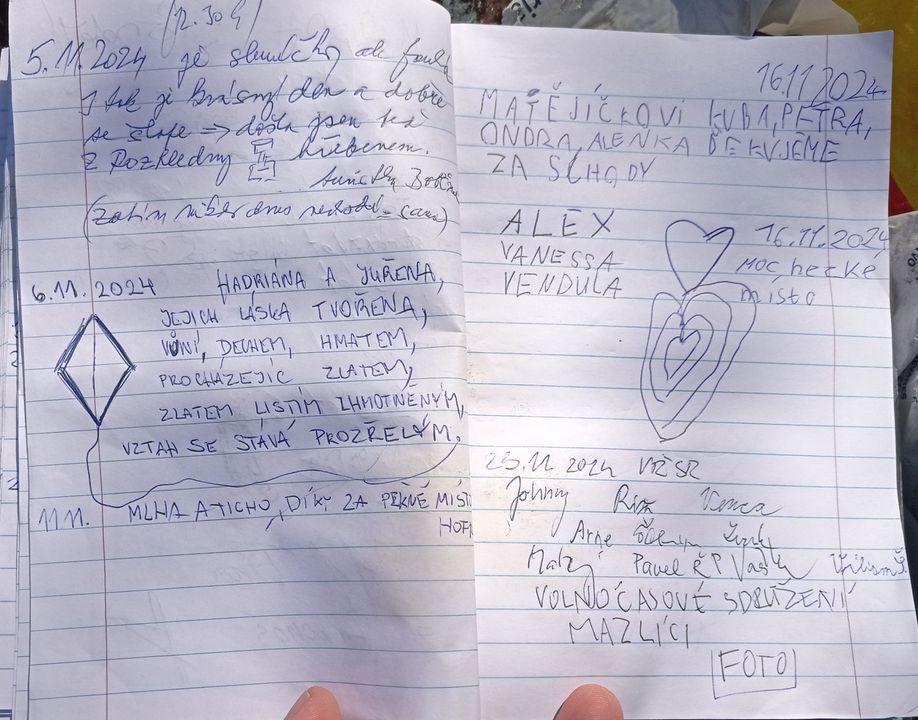 (12.30
5.11.2024 je sluníčko ale fouká
I tak je krásný den a dobře
se šlape => došla jsem
z Rozhledny hřebenem.
(zatím nikdo dnes
6.11.2024 HADRIÁNA A JUŘENA,
JEJICH LÁSKA TVOŘENA,
VŮNÍ, DECHEM, HMATEM,
PROCHÁZEJÍC ZLATEM,
ZLATEM LISTÍM ZHMOTNĚNÝM,
VZTAH SE STÁVÁ PROZŘELÝM.
11.11. MLHA A TICHO, DÍKY ZA PĚKNÉ MÍST
HOFM
16.11 2024
MATĚJÍČKOVI KUBA, PETRA,
ONDRA, ALENKA ĎEKUJEME
ZA SCHODY
ALEX
VANESSA
VENDULA
16.11.2024
moc hecké
místo
23.11.2024 VRŽSR
Johny
Arne
Matěj Pavel Ř P Vašík
VOLNOČASOVÉ SDRUŽENÍ
MAZLÍCI
FOTO